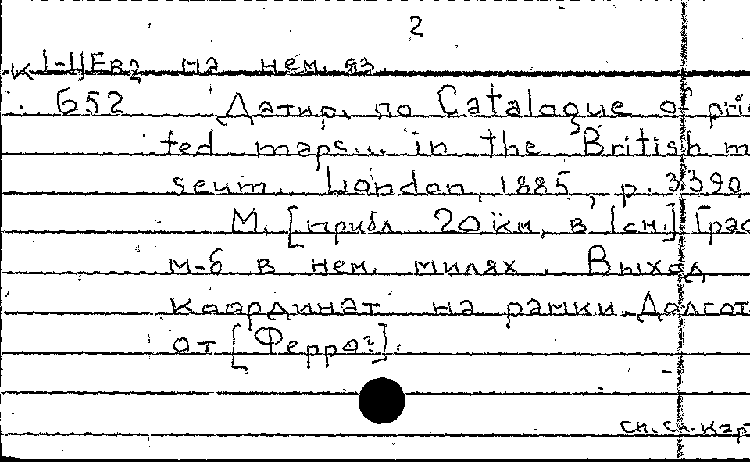 2
К 1-11Ев2 на нем. яз.
Б52 Датир. по Catalogue of prin
ted maps... in the British m
seum. London, 1885, p. 3390
М. [прибл. 20 км, в 1 см.] Град
м-б в нем. милях. Выход
координат на рамки. Долгот
от [Ферро?].
см. сл. карт